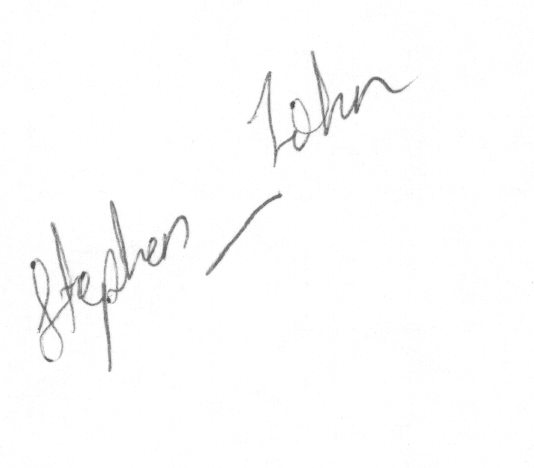 Stephen - John